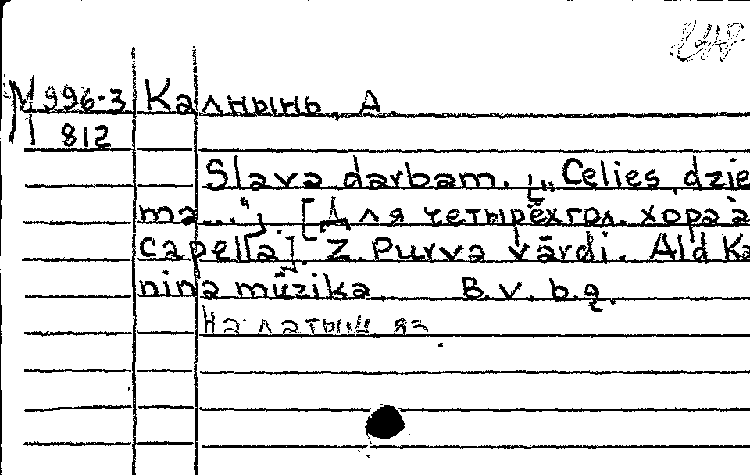 М 996-3 Калнынь, А.
812
Slava darbam. („Celies, dzie
ma...“). [Для четырёхгол. хора a
capella]. Z. Purva vārdi. Ald Ka
niņa mūzika. B.v. b.g.
На латыш яз.